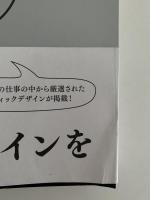 の仕事の中から厳選された
ィックデザインが掲載!
インを